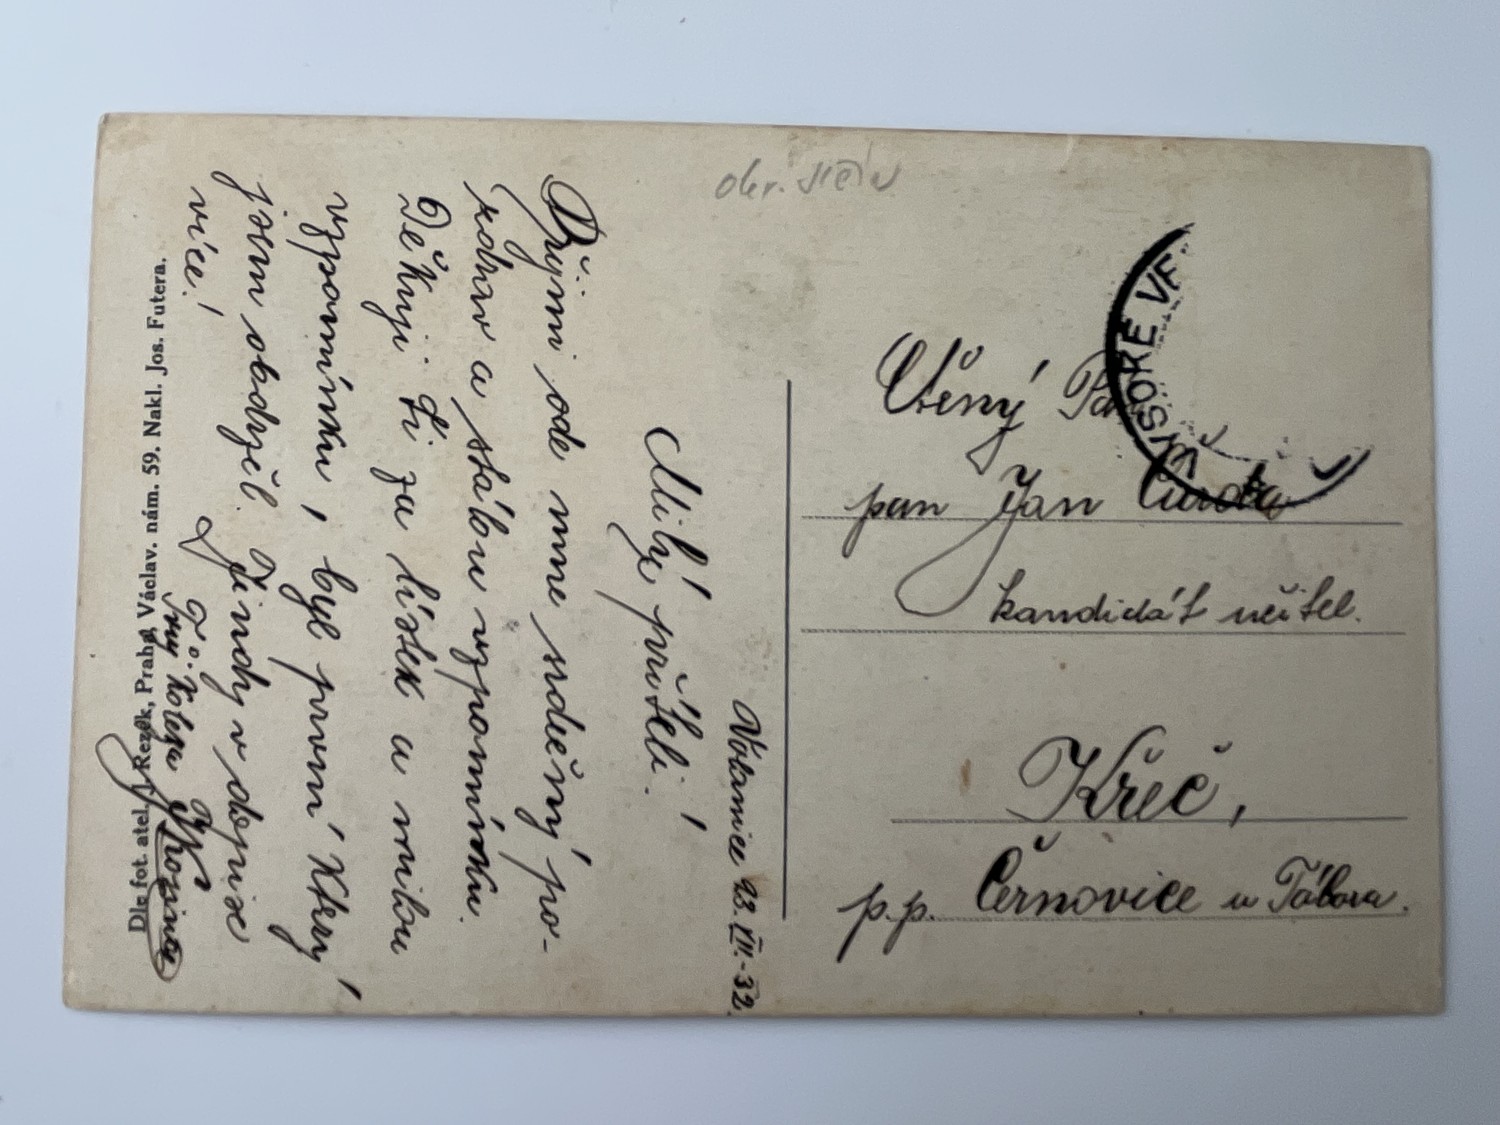 Volanice 23. VII.-32.
Milý příteli!
Přijmi ode mne srdečný po-
zdrav a stálou vzpomínku.
Děkuji Ti za lístek a milou
vzpomínku, byl první který
jsem obdržel. Jindy v dopise
více!
Tvůj kolega
Dle fot. atel. Rezek, Praha, Václav. nám. 59. Nakl. Jos. Futera.
okr. Jičín
VYSOKÉ VE
Ctěný Pan
pan Jan Čunda
kandidát učitel.
Křeč,
p.p. Černovice u Tábora.